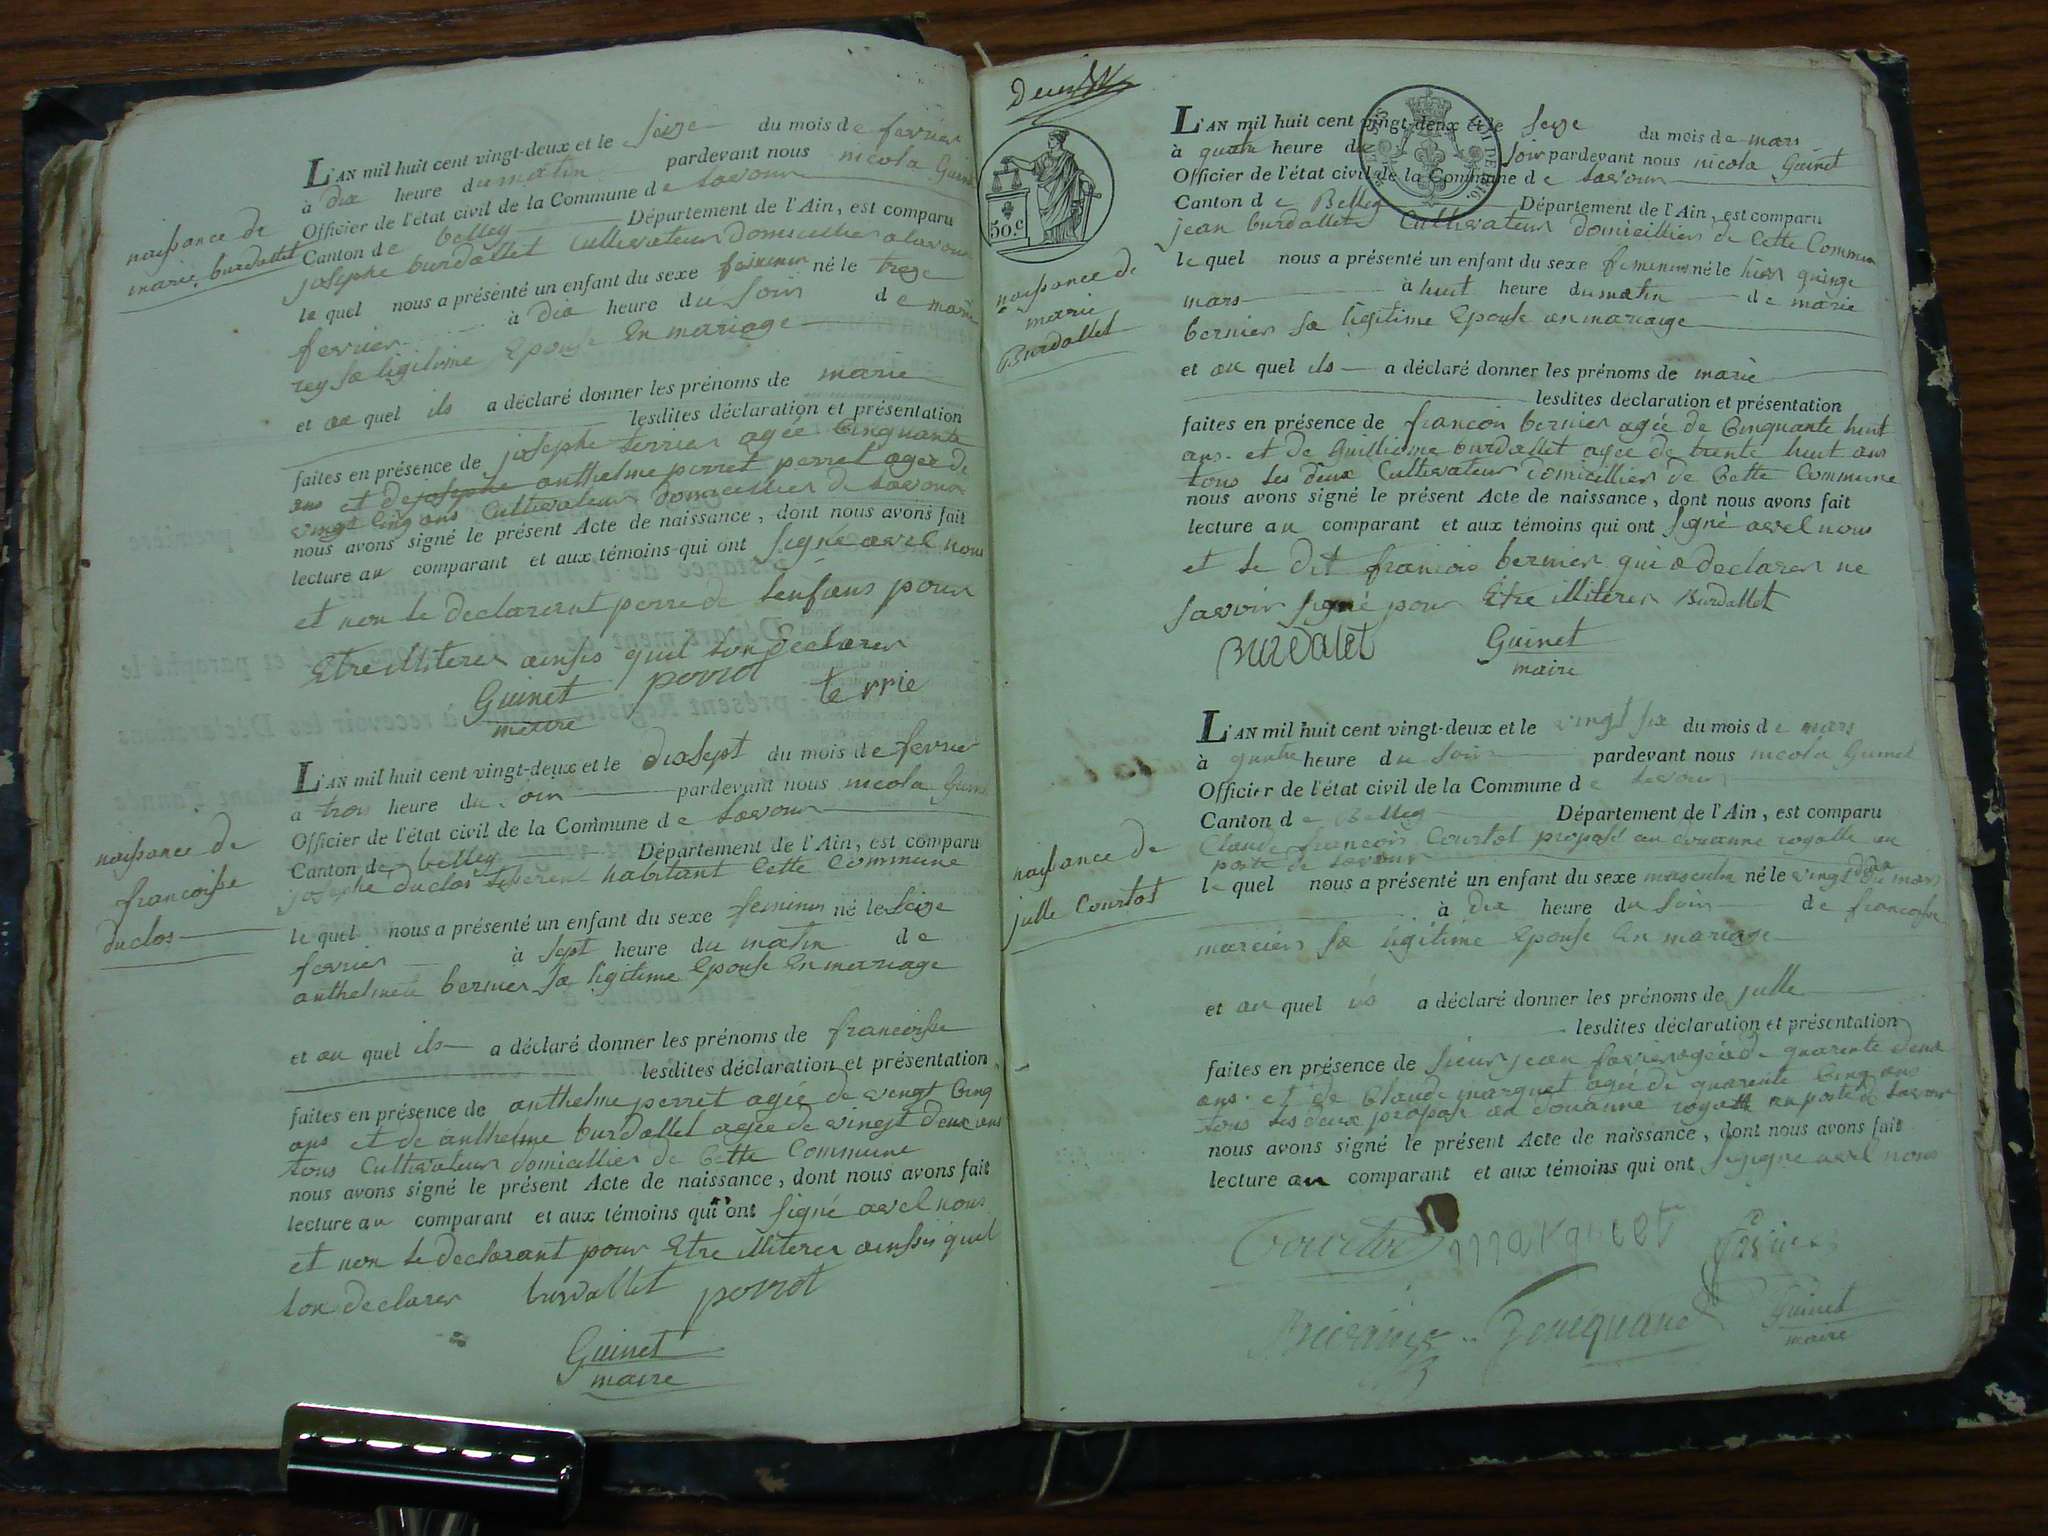 naissance de
marie burdallet
L'AN mil huit cent vingt-deux et le seize du mois de fevrier
à dix heure du matin pardevant nous nicola Guinet
Officier de l'état civil de la Commune de Lavour
Canton de belley Département de l'Ain, est comparu
josephe burdallet Cultivateur domicillier a lavour
le quel nous a présenté un enfant du sexe feminin né le treze
fevrier à dix heure du soir de marie
rey sa ligitime Epouse En mariage
et au quel ils a déclaré donner les prénoms de marie
lesdites déclaration et présentation
faites en présence de josephe terrier agée Cinquante
ans et de josephe anthelme perret perret agee de
vingt Cinq ans Cultivateur domicillier de Lavour
nous avons signé le présent Acte de naissance, dont nous avons fait
lecture au comparant et aux témoins qui ont signé avel nous
et non le declarant perre de lenfans pour
Etre illiterer ainsis quil lon declarer
Guinet perrot terrie
maire
naissance de
francoisse
duclos
L'AN mil huit cent vingt-deux et le dixsept du mois de fevrier
à trois heure du soir pardevant nous nicola Guinet
Officier de l'état civil de la Commune de Lavour
Canton de belley Département de l'Ain, est comparu
josephe duclos habitant Cette Commune
le quel nous a présenté un enfant du sexe feminin né le seize
fevrier à sept heure du matin de
anthelme bernier sa ligitime Epouse En mariage
et au quel ils a déclaré donner les prénoms de francoisse
lesdites déclaration et présentation
faites en présence de anthelme perret agée de vingt Cinq
ans et de anthelme burdallet agée de vingt deux ans
tous Cultivateur domicillier de Cette Commune
nous avons signé le présent Acte de naissance, dont nous avons fait
lecture au comparant et aux témoins qui ont signé avel nous
et non le declarant pour Etre illiterer ainssis quil
lon declarer burdallet perrot
Guinet
maire
50.c
naissance de
marie
Burdallet
L'AN mil huit cent vingt-deux et le seize du mois de mars
à quatre heure du soir pardevant nous nicola Guinet
Officier de l'état civil de la Commune de Lavour
Canton de Belley Département de l'Ain, est comparu
jean burdallet Cultivateur domicillier de Cette Commun
le quel nous a présenté un enfant du sexe feminin né le hier quinze
mars à huit heure du matin de marie
bernier sa ligitime Epouse en mariage
et au quel ils a déclaré donner les prénoms de marie
lesdites declaration et présentation
faites en présence de francois bernier agée de Cinquante huit
ans. et de Guilliome burdallet agée de trente huit ans
tous les deux Cultivateur domicillier de Cette Commune
nous avons signé le présent Acte de naissance, dont nous avons fait
lecture au comparant et aux témoins qui ont signé avel nous
et le dit francois bernier qui a declarer ne
savoir signé pour Etre illiterer Burdallet
BURDALET Guinet
maire
naissance de
julle Courtot
L'AN mil huit cent vingt-deux et le vingt six du mois de mars
à quatre heure du soir pardevant nous nicola Guinet
Officier de l'état civil de la Commune de Lavour
Canton de Belley Département de l'Ain, est comparu
Claude francois Courtot proposé au douanne royalle au
poste de Lavour
le quel nous a présenté un enfant du sexe masculin né le vingt mars
à dix heure du soir de francoisse
marcier sa ligitime Epouse En mariage
et au quel ils a déclaré donner les prénoms de julle
lesdites déclaration et présentation
faites en présence de sieur jean favier agée de quarente deux
ans. et de Claude marquet agée de quarente Cinq ans
tous les deux proposé au douanne royalle au poste de Lavour
nous avons signé le présent Acte de naissance, dont nous avons fait
lecture au comparant et aux témoins qui ont signé avel nous
Courtot marquet
Guinet
maire